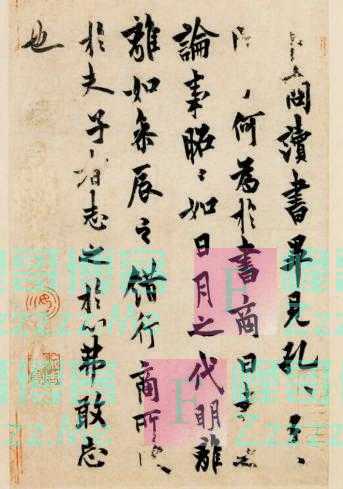 商讀書畢見孔子〻
何為於書商曰書之
論事昭〻如日月之代明離
離如參辰之錯行商所受
於夫子者志之於心弗敢忘
也